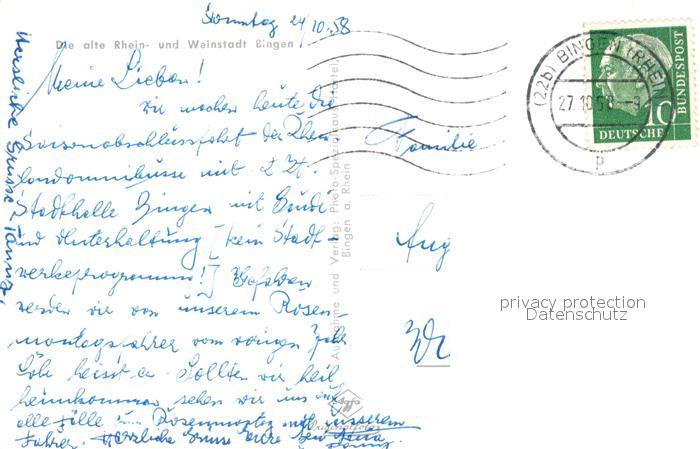 Sonntag 24/10.58
Die alte Rhein- und Weinstadt Bingen
Meine Lieben!
wir machen heute die
Saisonabschlussfahrt der Rhein
landomnibusse mit z. Zt.
Stadthalle Bingen mit
und Unterhaltung [kein Stadt-
werkeprogramm!] Gefahren
werden wir von unserem Rosen-
montagsfahrer vom vorigen Jahr
heisst er. Sollten wir heil
heimkommen sehen wir uns auf
alle Fälle zum Rosenmontag mit unserem
Fahrer. Herzliche Grüsse Eure
Herzliche Grüsse
Familie
Aufnahme und Verlag: Photo-
Bingen a. Rhein
(22b) BINGEN (RHEIN)
27.10.58.--9
p
10
DEUTSCHE
BUNDESPOST
privacy protection
Datenschutz